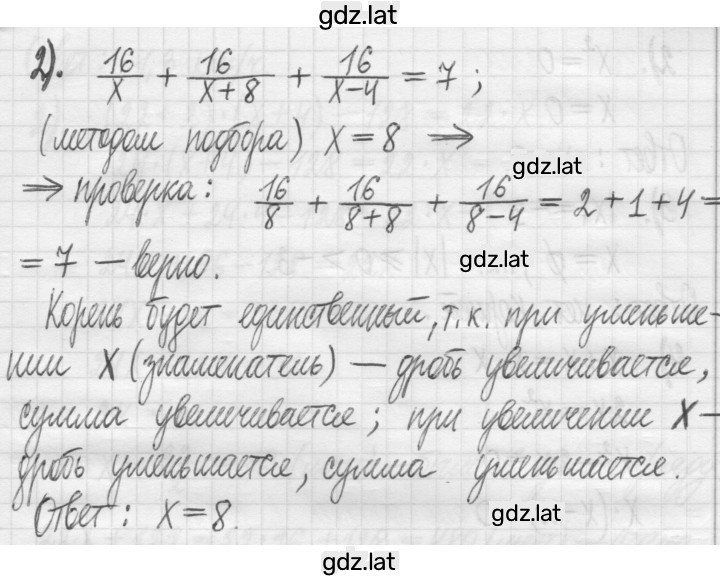 gdz.lat
2). 16/x + 16/(x+8) + 16/(x-4) = 7 ;
(методом подбора) x = 8 ⟹
gdz.lat
⟹ проверка: 16/8 + 16/(8+8) + 16/(8-4) = 2 + 1 + 4 =
= 7 — верно.
gdz.lat
Корень будет единственный, т.к. при уменьше-
нии x (знаменатель) — дробь увеличивается,
сумма увеличивается; при увеличении x —
дробь уменьшается, сумма уменьшается.
Ответ: x = 8.
gdz.lat
gdz.lat